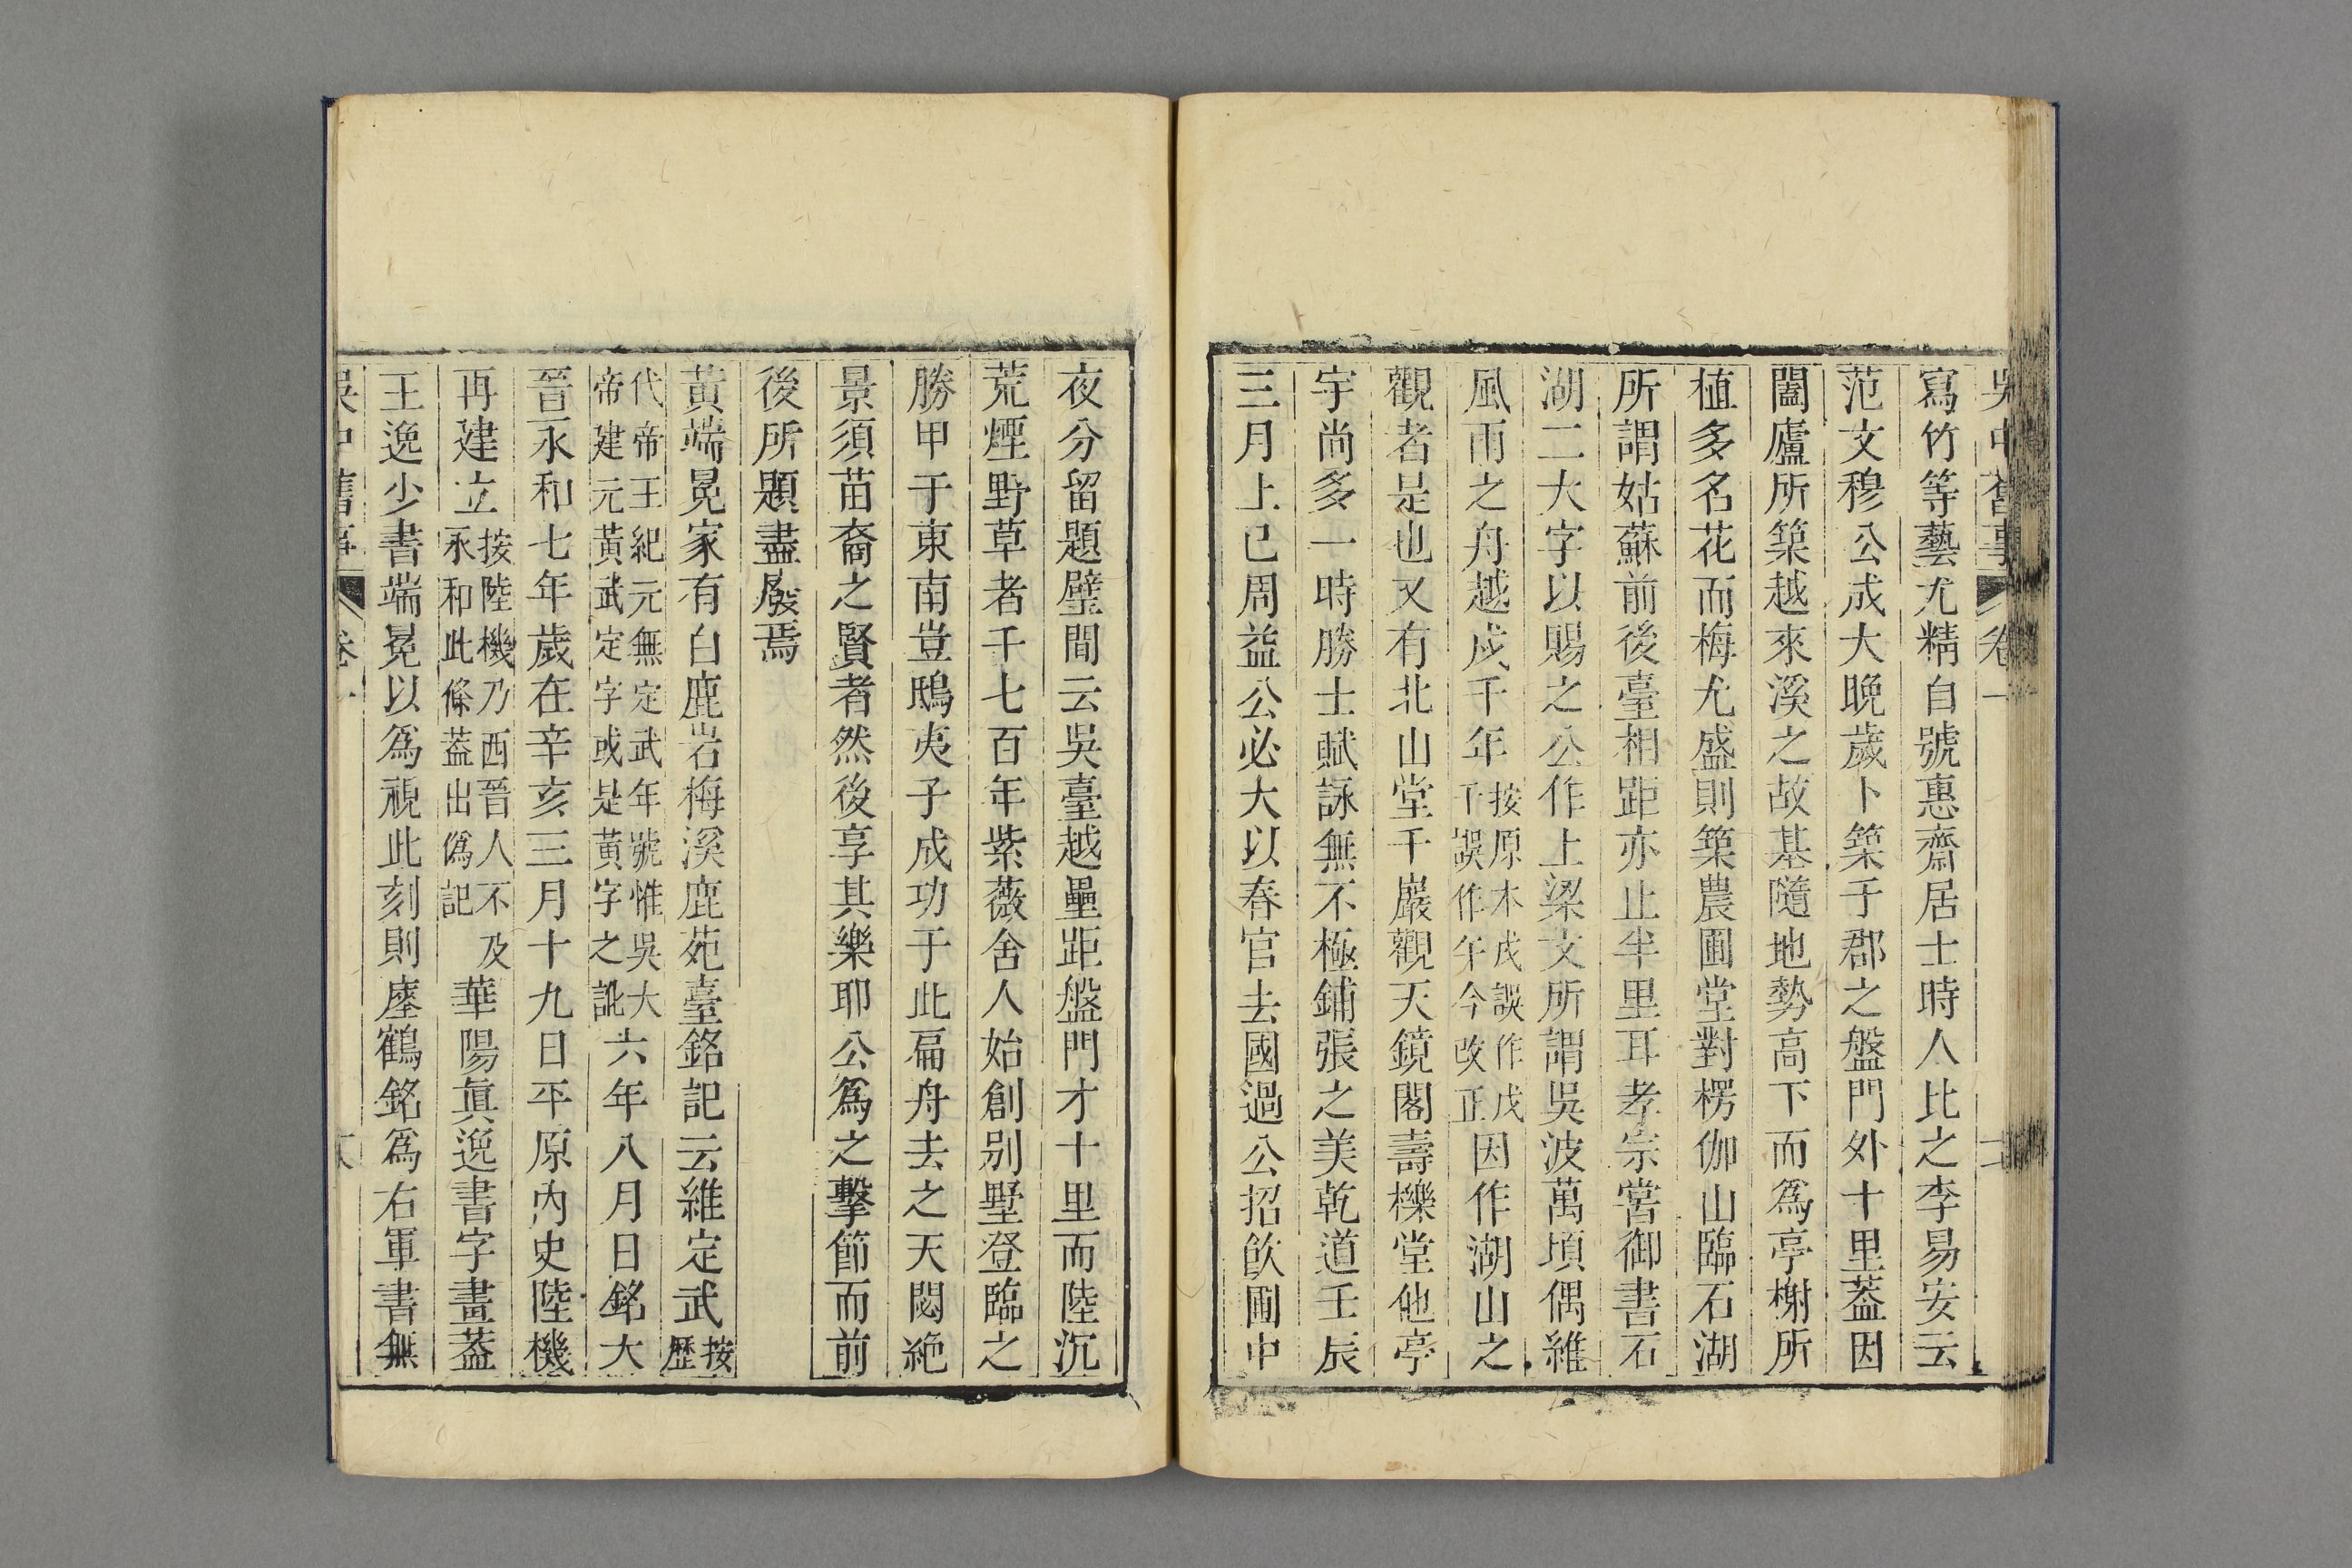 吳中舊事 卷一
寫竹等藝尤精自號惠齋居士時人比之李易安云
范文穆公成大晚歲卜築于郡之盤門外十里葢因
闔廬所築越來溪之故基隨地勢高下而爲亭榭所
植多名花而梅尤盛則築農圃堂對楞伽山臨石湖
所謂姑蘇前後臺相距亦止半里耳孝宗嘗御書石
湖二大字以賜之公作上梁文所謂吳波萬頃偶維
風雨之舟越戍千年按原本戍誤作戊千誤作午今改正因作湖山之
觀者是也又有北山堂千巖觀天鏡閣壽櫟堂他亭
宇尚多一時勝士賦詠無不極鋪張之美乾道壬辰
三月上巳周益公必大以春官去國過公招飮圃中
夜分留題壁間云吳臺越壘距盤門才十里而陸沉
荒煙野草者千七百年紫薇舍人始創别墅登臨之
勝甲于東南豈鴟夷子成功于此扁舟去之天閟絶
景須苗裔之賢者然後享其樂耶公爲之擊節而前
後所題盡廢焉
黃端冕家有白鹿岩梅溪鹿苑臺銘記云維定武按歷
代帝王紀元無定武年號惟吳大帝建元黃武定字或是黃字之訛六年八月日銘大
晉永和七年歲在辛亥三月十九日平原內史陸機
再建立按陸機乃西晉人不及永和此條葢出僞記華陽眞逸書字畫葢
王逸少書端冕以爲視此刻則瘞鶴銘爲右軍書無
吳中舊事 卷一